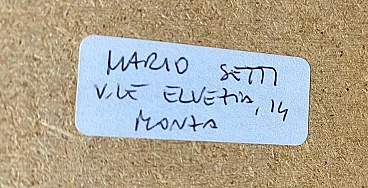 MARIO SETTI
V.LE ELVEZIA, 14
MONZA